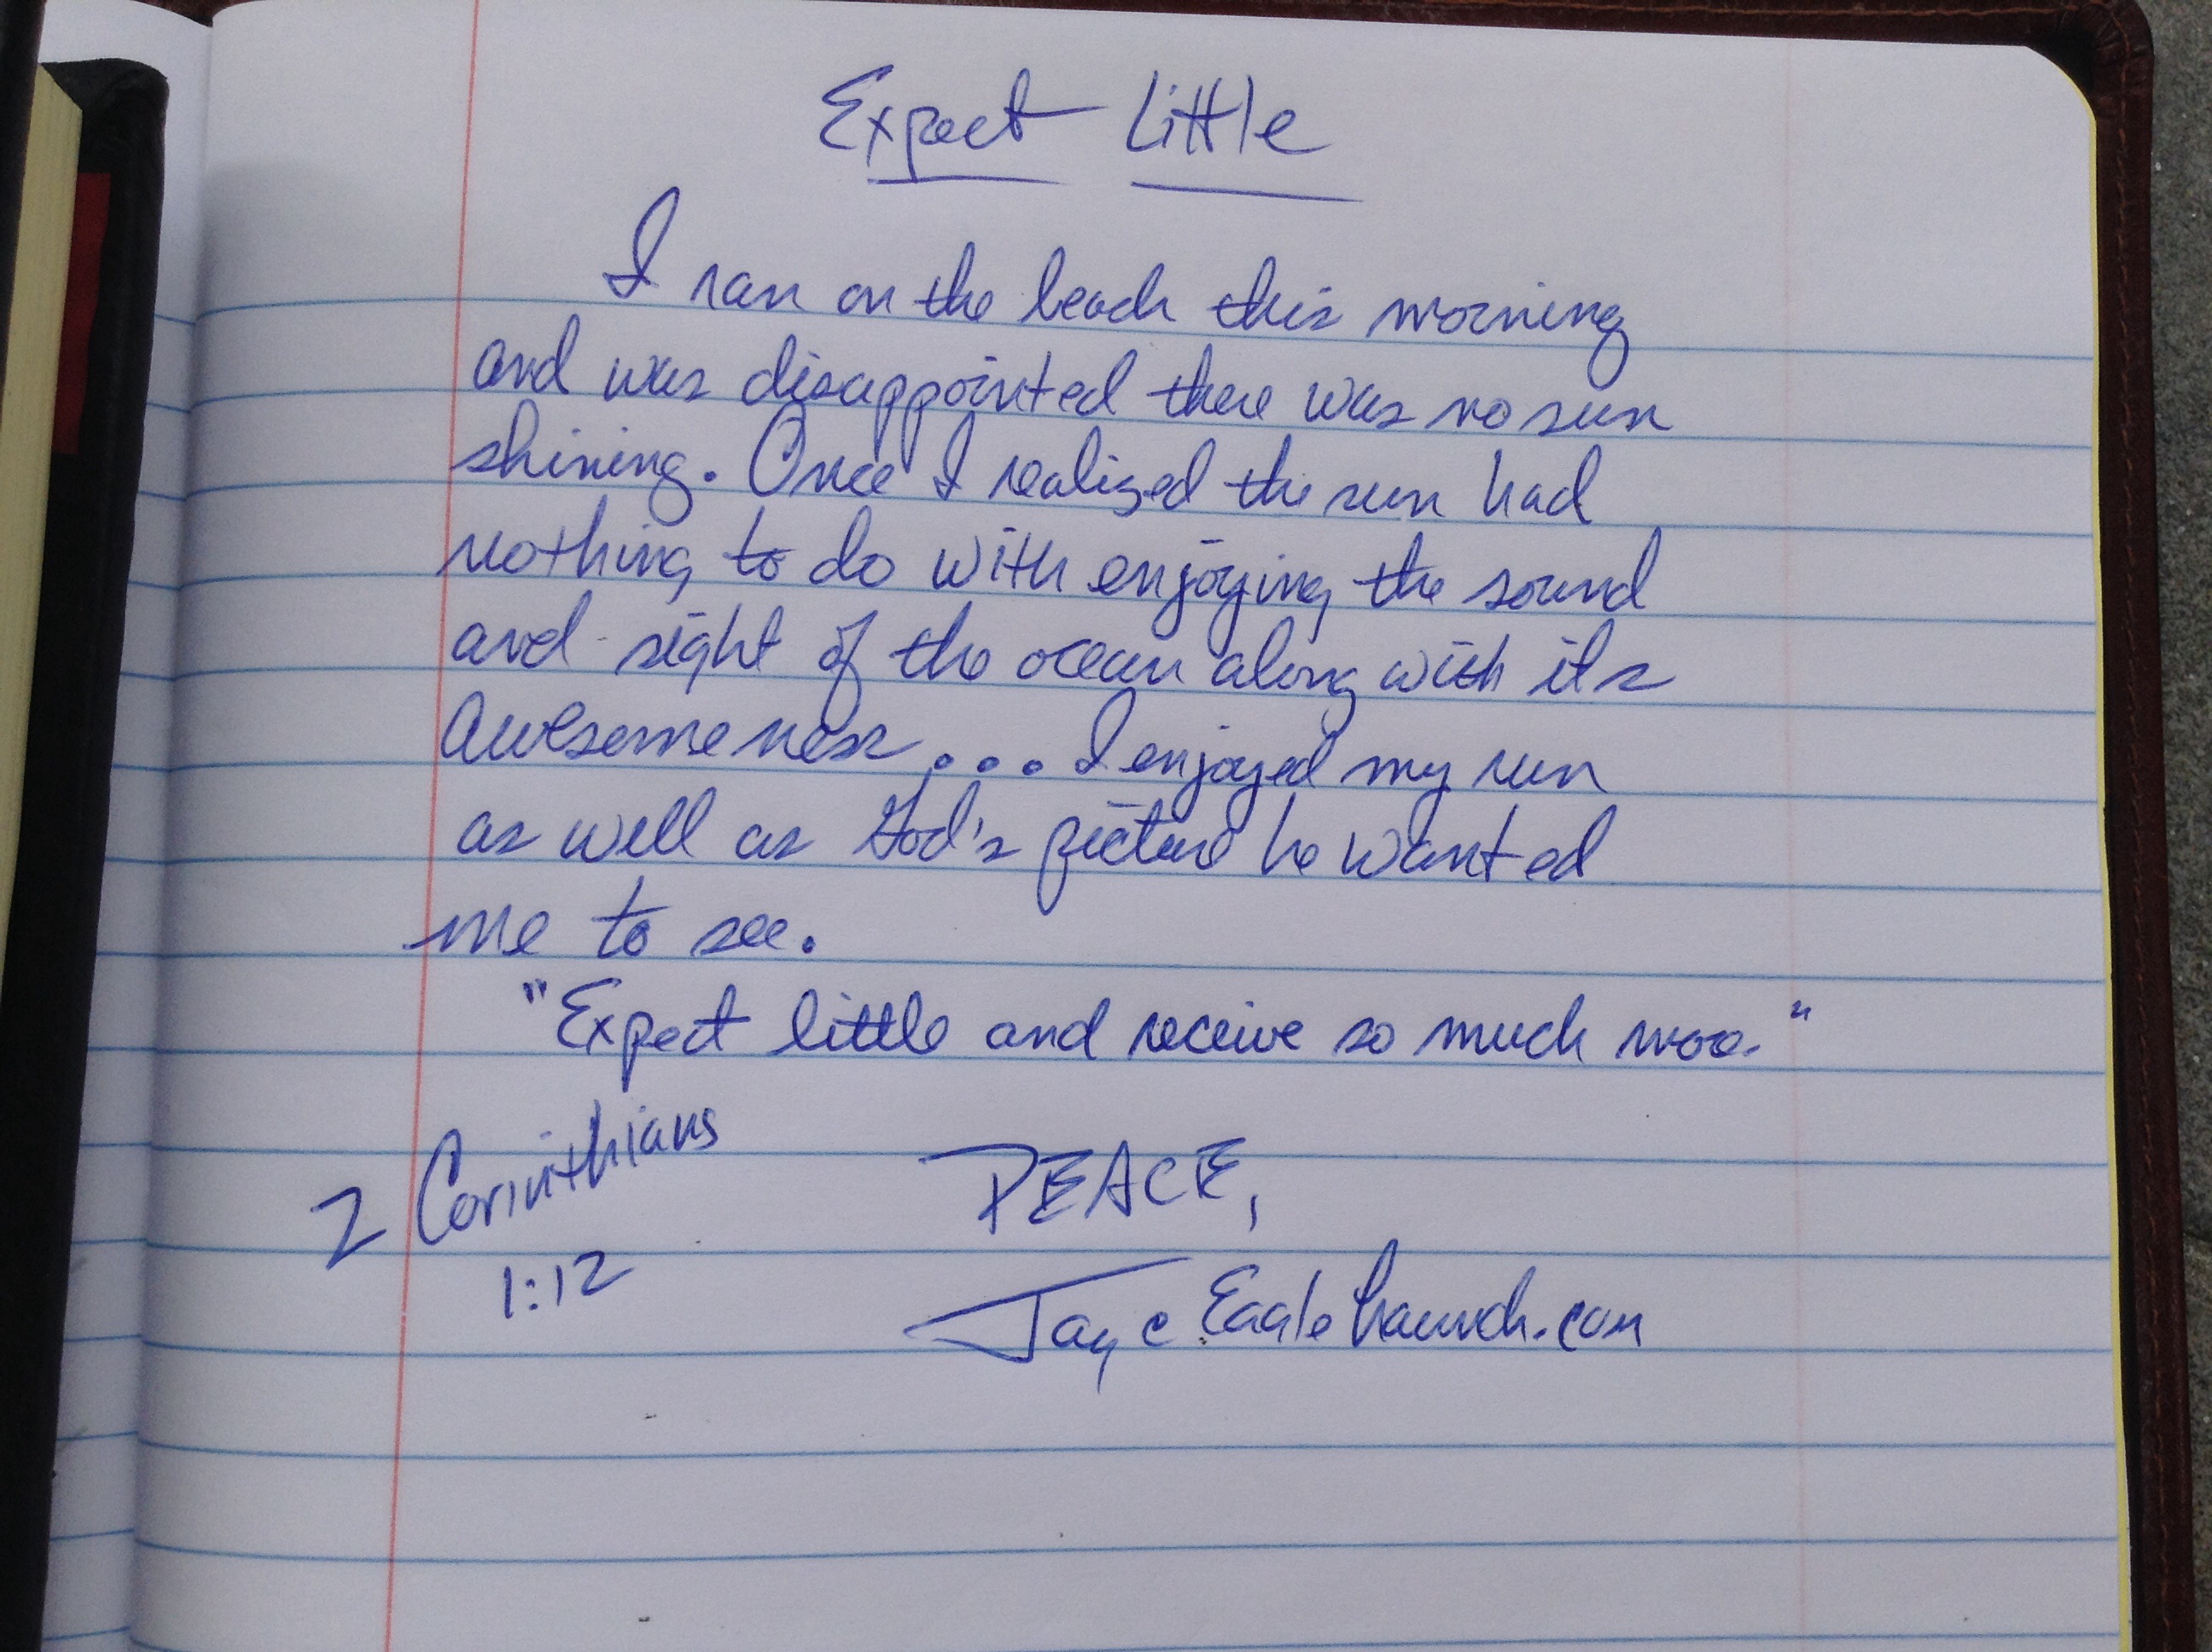 Expect Little
I ran on the beach this morning
and was disappointed there was no sun
shining. Once I realized the sun had
nothing to do with enjoying the sound
and sight of the ocean along with its
awesomeness... I enjoyed my run
as well as God's picture he wanted
me to see.
"Expect little and receive so much more."
2 Corinthians
1:12
PEACE,
Jayc Eagle